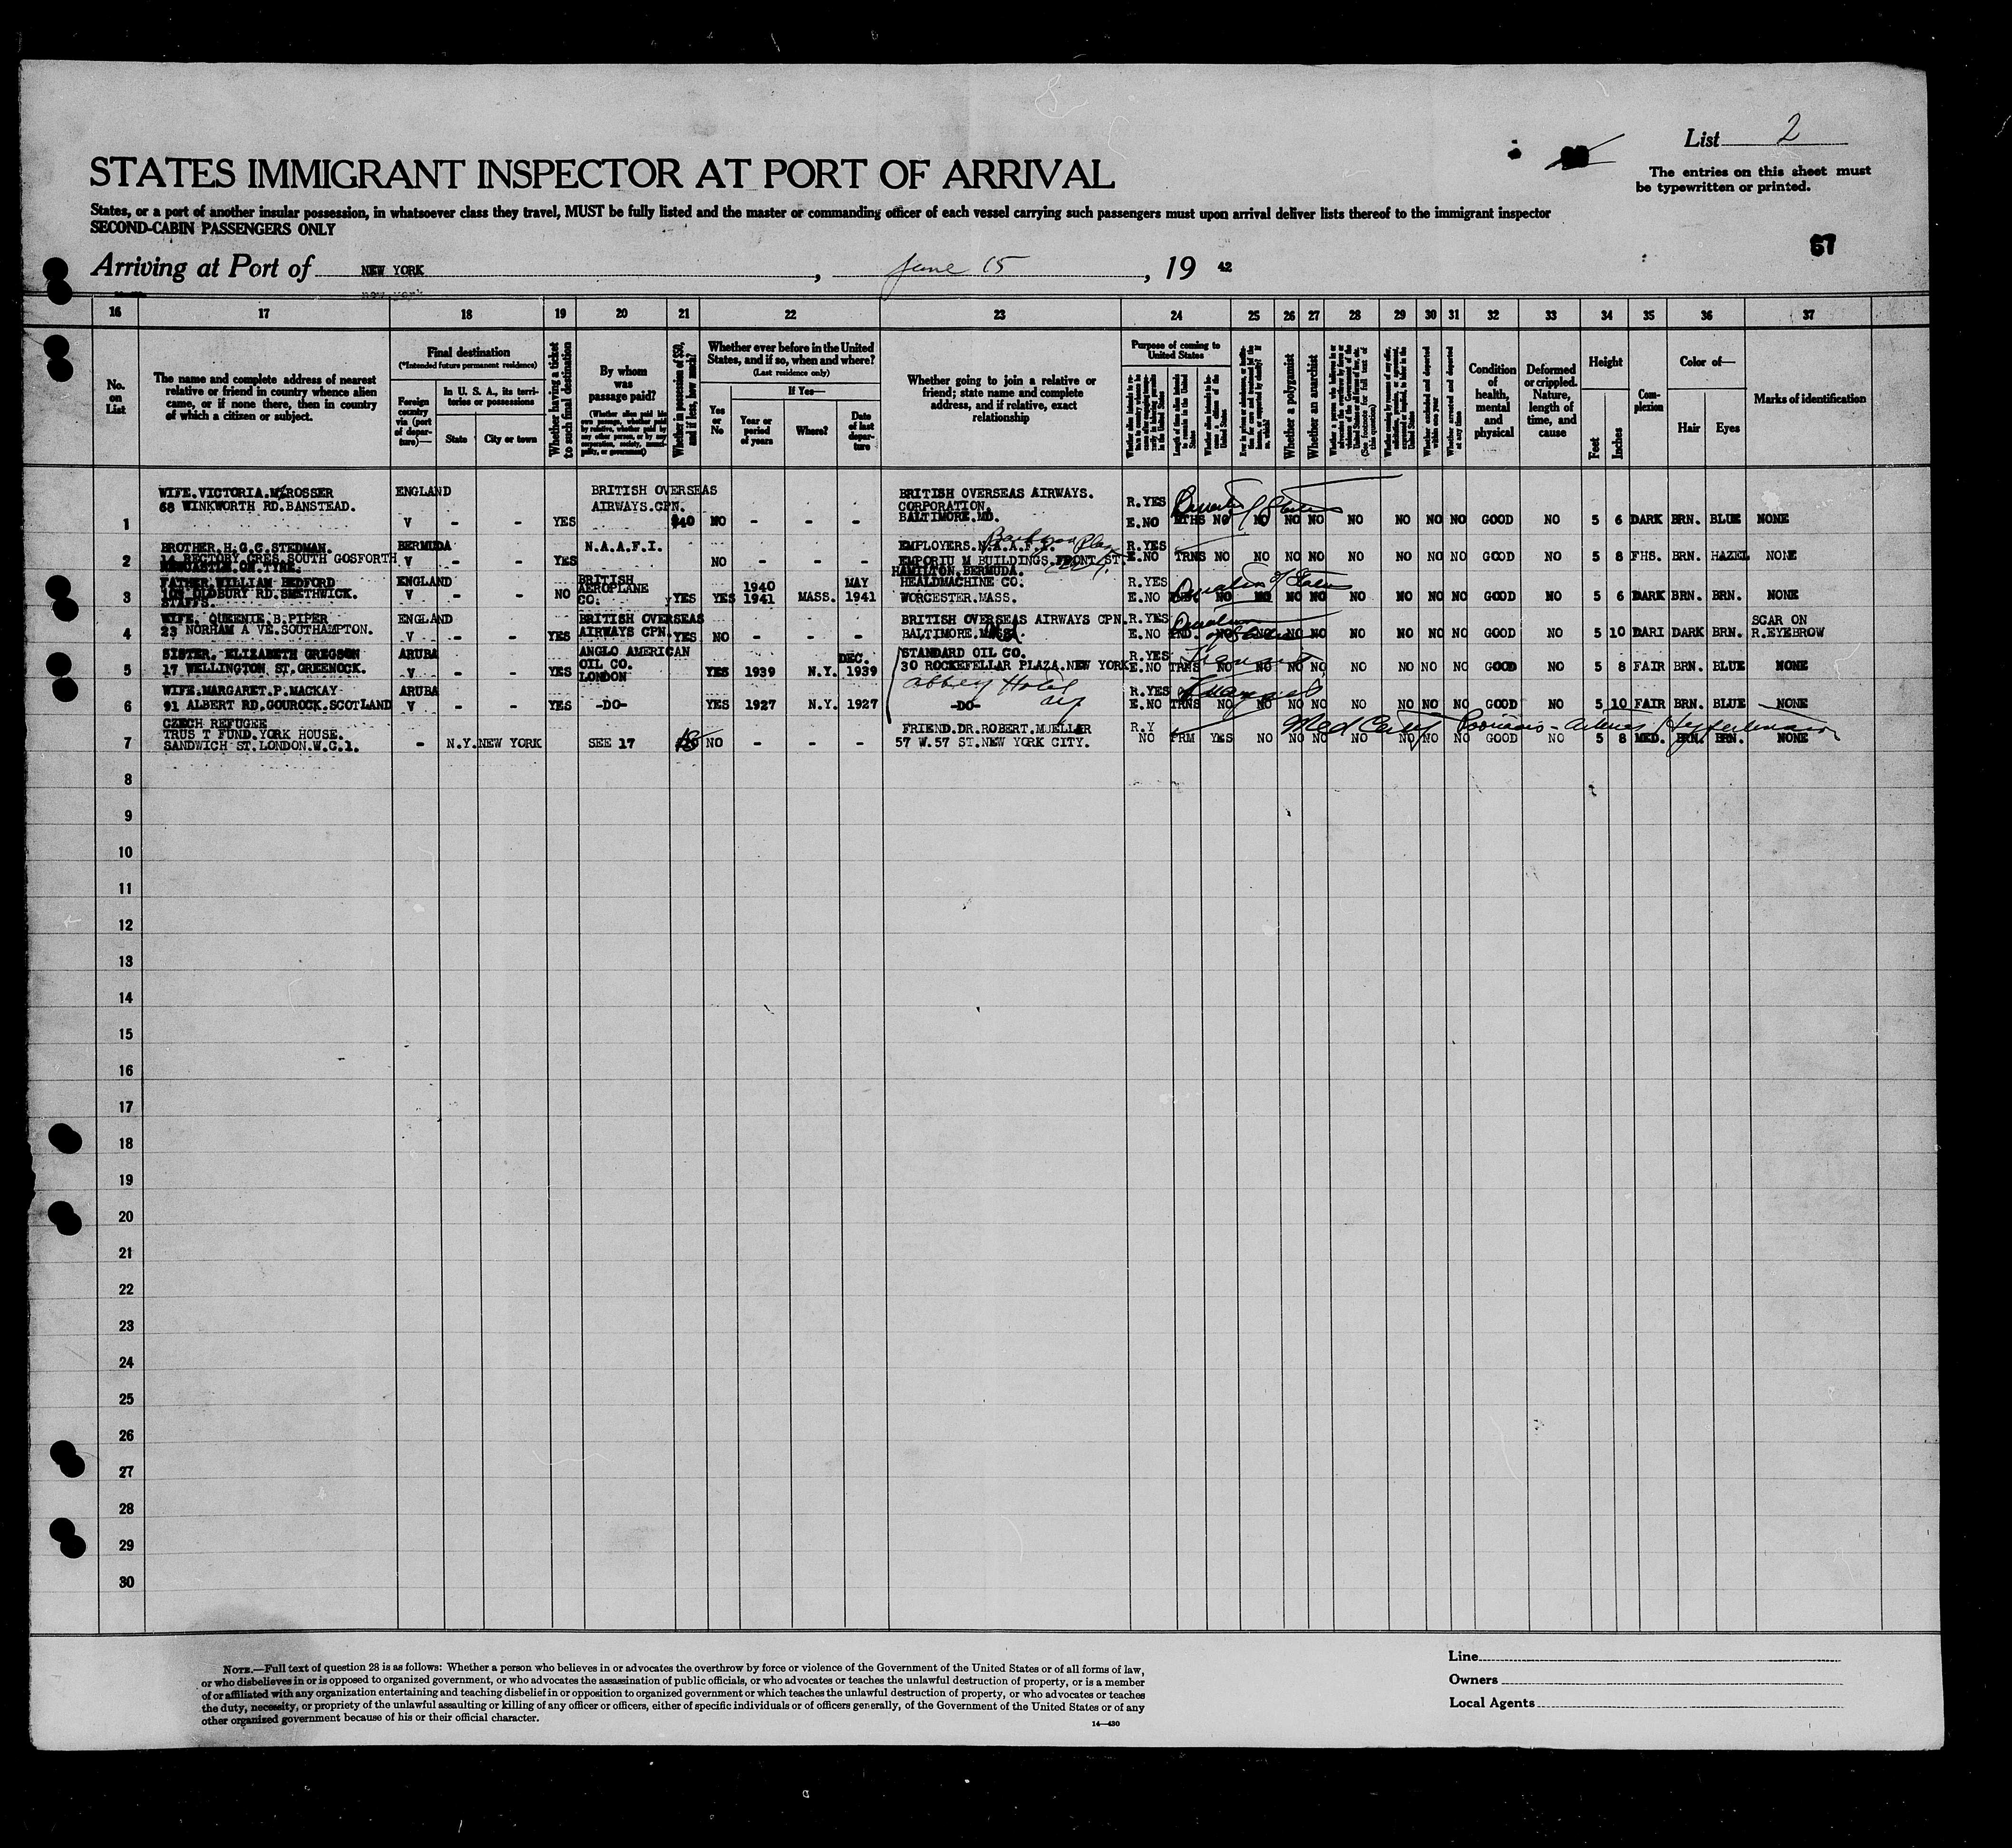 List 2
STATES IMMIGRANT INSPECTOR AT PORT OF ARRIVAL
The entries on this sheet must
be typewritten or printed.
States, or a part of another insular possession, in whatsoever class they travel, MUST be fully listed and the master or commanding officer of each vessel carrying such passengers must upon arrival deliver lists thereof to the immigrant inspector
SECOND-CABIN PASSENGERS ONLY
67
Arriving at Port of NEW YORK, June 15, 19 42
16 17 18 19 20 21 22 23 24 25 26 27 28 29 30 31 32 33 34 35 36 37
No. on List
The name and complete address of nearest
relative or friend in country whence alien
came, or if none there, then in country
of which a citizen or subject.
Final destination
(*Intended future permanent residence)
Foreign country via (port of departure)—
In U. S. A., its territories or possessions
State
City or town
Whether having a ticket to such final destination
By whom was passage paid?
(Whether alien paid his own passage, whether paid by relative, whether paid by any other person, or by any corporation, society, municipality, or government)
Whether in possession of $50, and if less, how much?
Whether ever before in the United
States, and if so, when and where?
(Last residence only)
Yes or No
If Yes—
Year or period of years
Where?
Date of last departure
Whether going to join a relative or
friend; state name and complete
address, and if relative, exact
relationship
Purpose of coming to United States
Length of time alien intends to remain in the United States
Whether alien intends to become a citizen of the United States
Whether a polygamist
Whether an anarchist
Whether arrested and deported at any time
Condition of health, mental and physical
Deformed or crippled. Nature, length of time, and cause
Height
Feet
Inches
Complexion
Color of—
Hair
Eyes
Marks of identification
WIFE.VICTORIA.M.ROSSER ENGLAND BRITISH OVERSEAS BRITISH OVERSEAS AIRWAYS.
68 WINKWORTH RD.BANSTEAD. AIRWAYS.CPN. CORPORATION. R.YES
1 V - - YES $40 NO - - - BALTIMORE.MD. E.NO MTHS NO NO NO NO NO NO NO NO GOOD NO 5 6 DARK BRN. BLUE NONE
BROTHER.H.G.C.STEDMAN. BERMUDA N.A.A.F.I. EMPLOYERS.N.A.A.F.I. R.YES
2 14 RECTORY CRES.SOUTH GOSFORTH V - - YES NO - - - EMPORIU M BUILDINGS.FRONT ST. E.NO TRNS NO NO NO NO NO NO NO NO GOOD NO 5 8 FHS. BRN. HAZEL NONE
NEWCASTLE.ON.TYNE. HAMILTON.BERMUDA.
FATHER.WILLIAM BEDFORD ENGLAND BRITISH 1940 MAY HEALDMACHINE CO. R.YES
3 103 OLDBURY RD.SMETHWICK. V - - NO AEROPLANE CO. YES YES 1941 MASS. 1941 WORCESTER.MASS. E.NO NO NO NO NO NO NO NO NO GOOD NO 5 6 DARK BRN. BRN. NONE
STAFFS.
WIFE. QUEENIE.B.PIPER ENGLAND BRITISH OVERSEAS BRITISH OVERSEAS AIRWAYS CPN. R.YES SCAR ON
4 23 NORHAM A VE.SOUTHAMPTON. V - - YES AIRWAYS CPN. YES NO - - - BALTIMORE. E.NO IND. NO NO NO NO NO NO NO NO GOOD NO 5 10 DARI DARK BRN. R.EYEBROW
SISTER. ELIZABETH GREGSON ARUBA ANGLO AMERICAN DEC. STANDARD OIL CO. R.YES Transit
5 17 WELLINGTON ST.GREENOCK. V - - YES OIL CO. LONDON YES 1939 N.Y. 1939 30 ROCKEFELLAR PLAZA.NEW YORK E.NO TRNS NO NO NO NO NO NO NO NO GOOD NO 5 8 FAIR BRN. BLUE NONE
Abbey Hotel
WIFE.MARGARET.P.MACKAY ARUBA R.YES Transit
6 91 ALBERT RD.GOUROCK.SCOTLAND V - - YES -DO- YES 1927 N.Y. 1927 -DO- E.NO TRNS NO NO NO NO NO NO NO NO GOOD NO 5 10 FAIR BRN. BLUE NONE
CZECH REFUGEE
TRUS T FUND.YORK HOUSE. FRIEND.DR.ROBERT.MUELLAR R.Y Med Cert
7 SANDWICH ST.LONDON.W.C.1. - N.Y. NEW YORK SEE 17 NO - - - 57 W.57 ST.NEW YORK CITY. NO PRM YES NO NO NO NO NO NO NO GOOD NO 5 8 MED. BRN. BRN. NONE
8
9
10
11
12
13
14
15
16
17
18
19
20
21
22
23
24
25
26
27
28
29
30
NOTE.—Full text of question 28 is as follows: Whether a person who believes in or advocates the overthrow by force or violence of the Government of the United States or of all forms of law,
or who disbelieves in or is opposed to organized government, or who advocates the assassination of public officials, or who advocates or teaches the unlawful destruction of property, or is a member
of or affiliated with any organization entertaining and teaching disbelief in or opposition to organized government or which teaches the unlawful destruction of property, or who advocates or teaches
the duty, necessity, or propriety of the unlawful assaulting or killing of any officer or officers, either of specific individuals or of officers generally, of the Government of the United States or of any
other organized government because of his or their official character.
14—430
Line
Owners
Local Agents